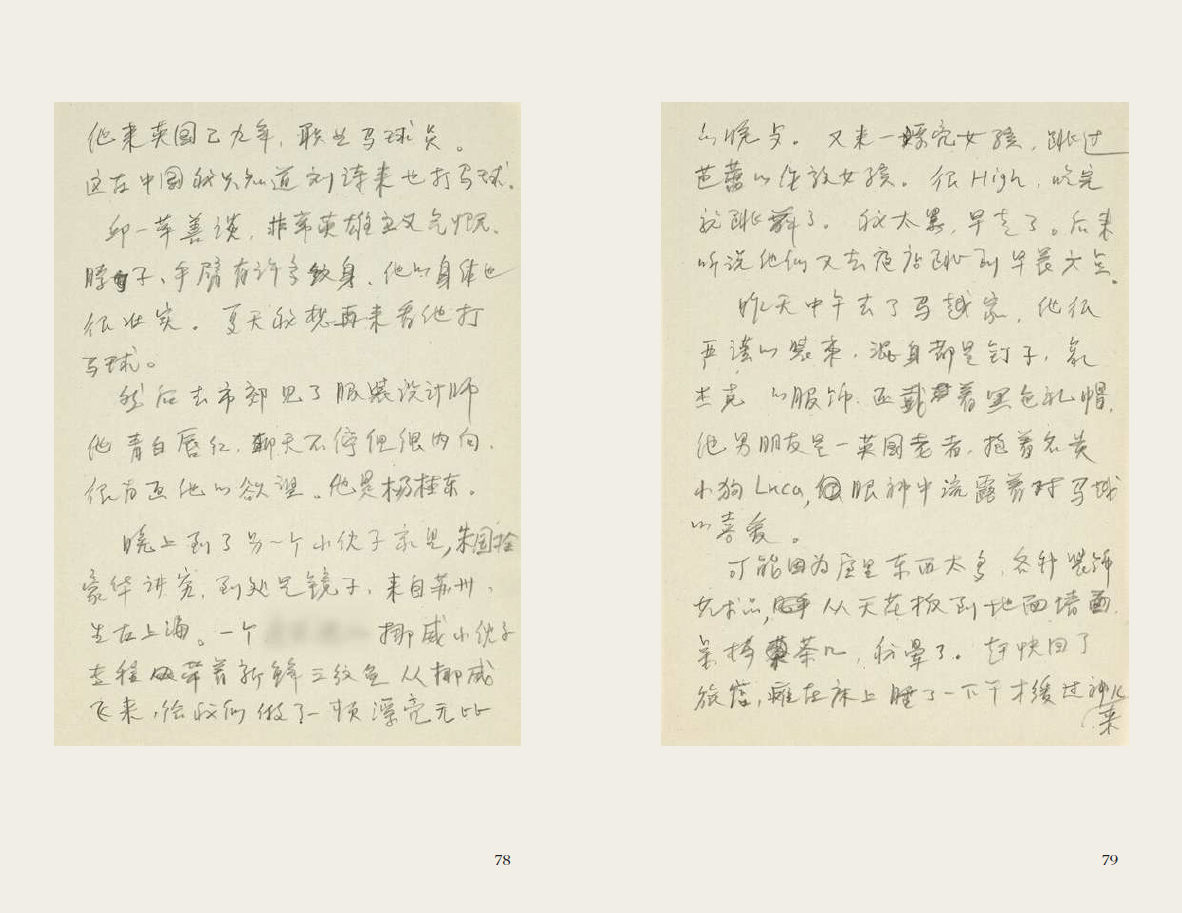 他来英国已九年，职业马球员。
这在中国我只知道刘诗来也打马球。
邱一苹善谈，非常英雄主义气慨、
脖子、手臂有许多纹身，他的身体也
很壮实。夏天我想再来看他打
马球。
然后去市郊见了服装设计师
他青白唇红，聊天不停但很内向，
很有逼他的欲望。他是杨桂东。
晚上到了另一个小伙子家里，朱国栓
豪华讲究，到处是镜子，来自苏州，
生在上海。一个 挪威小伙子
专程带着新鲜三纹鱼从挪威
飞来，给我们做了一顿漂亮无比
的晚歺。又来一漂亮女孩，跳过
芭蕾的传放女孩。很High，吃完
就跳舞了。我太累，早走了。后来
听说他们又去夜店跳到早晨六点。
昨天中午去了马越家，他很
严谨的装束，混身都是钉子，
杰克 的服饰，还戴着黑色礼帽，
他男朋友是一英国老者，抱着名贵
小狗Luca，眼神中流露着对马越
的喜爱。
可能因为屋里东西太多，各种装饰
艺术品，从天花板到地面墙面，
呆椅茶几，我晕了。赶快回了
旅店，瘫在床上睡了一下午才缓过神儿
来
78
79